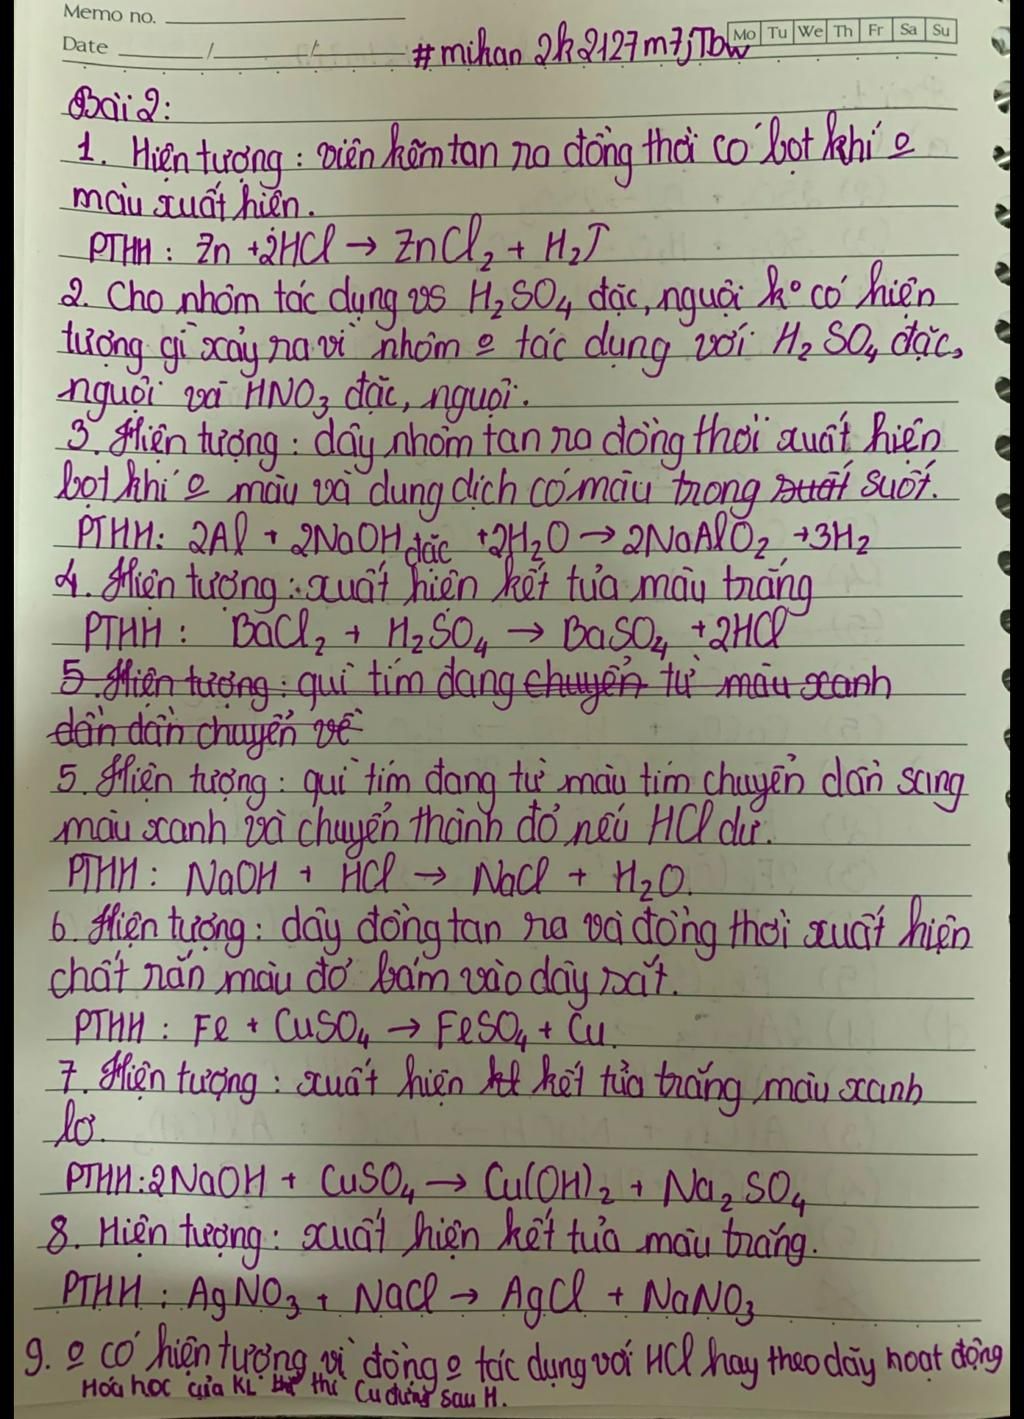 Memo no.
Mo Tu We Th Fr Sa Su
Date / /
#mihan2k2127m7jTbw
Bài 2:
1. Hiện tượng: viên kẽm tan ra đồng thời có bọt khí o
màu xuất hiện.
PTHH: Zn +2HCl → ZnCl2 + H2↑
2. Cho nhôm tác dụng vs H2SO4 đặc, nguội ko có hiện
tượng gì xảy ra vì nhôm o tác dụng với H2SO4 đặc,
nguội và HNO3 đặc, nguội.
3. Hiện tượng: dây nhôm tan ra đồng thời xuất hiện
bọt khí o màu và dung dịch có màu trong suất suốt.
PTHH: 2Al + 2NaOH đặc +2H2O → 2NaAlO2 +3H2
4. Hiện tượng: xuất hiện kết tủa màu trắng
PTHH: BaCl2 + H2SO4 → BaSO4 +2HCl
5. Hiện tượng: quì tím đang chuyển từ màu xanh
dần dần chuyển về
5. Hiện tượng: quì tím đang từ màu tím chuyển dần sang
màu xanh và chuyển thành đỏ nếu HCl dư.
PTHH: NaOH + HCl → NaCl + H2O.
6. Hiện tượng: dây đồng tan ra và đồng thời xuất hiện
chất rắn màu đỏ bám vào dây sắt.
PTHH: Fe + CuSO4 → FeSO4 + Cu.
7. Hiện tượng: xuất hiện kt kết tủa trắng màu xanh
lơ.
PTHH: 2NaOH + CuSO4 → Cu(OH)2 + Na2SO4
8. Hiện tượng: xuất hiện kết tủa màu trắng.
PTHH: AgNO3 + NaCl → AgCl + NaNO3
9. o có hiện tượng vì đồng o tác dụng với HCl hay theo dãy hoạt động
Hóa học của KL thì Cu đứng sau H.